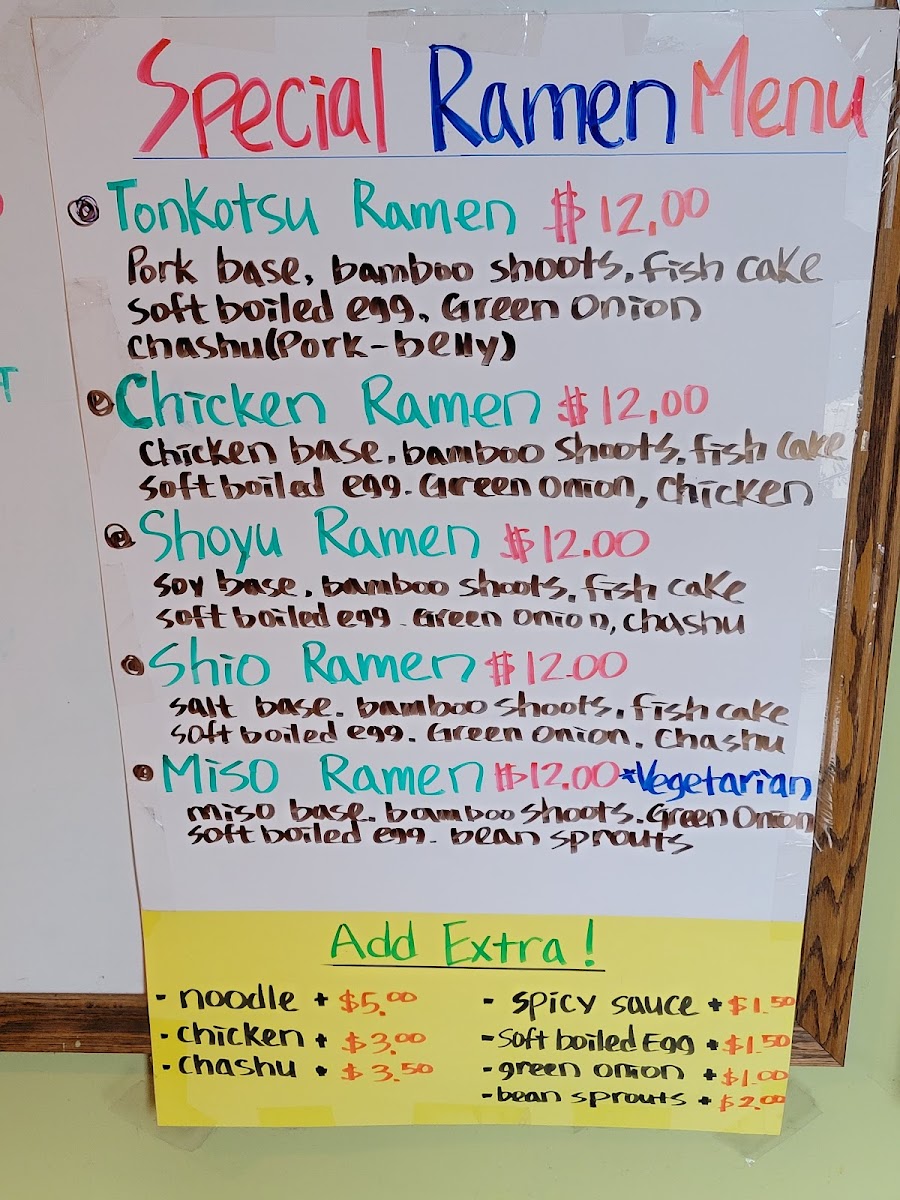 Special Ramen Menu
Tonkotsu Ramen $12.00
Pork base, bamboo shoots, fish cake
soft boiled egg, Green Onion
chashu(Pork-belly)
Chicken Ramen $12.00
chicken base, bamboo shoots, fish cake
soft boiled egg. Green Onion, chicken
Shoyu Ramen $12.00
soy base, bamboo shoots, fish cake
soft boiled egg. Green Onion, chashu
Shio Ramen $12.00
salt base. bamboo shoots, fish cake
soft boiled egg. Green Onion. chashu
Miso Ramen $12.00 *Vegetarian
miso base. bamboo shoots. Green Onion
soft boiled egg. bean sprouts
Add Extra!
- noodle + $5.00
- chicken + $3.00
- chashu + $3.50
- spicy sauce + $1.50
- soft boiled Egg + $1.50
- green onion + $1.00
- bean sprouts + $2.00